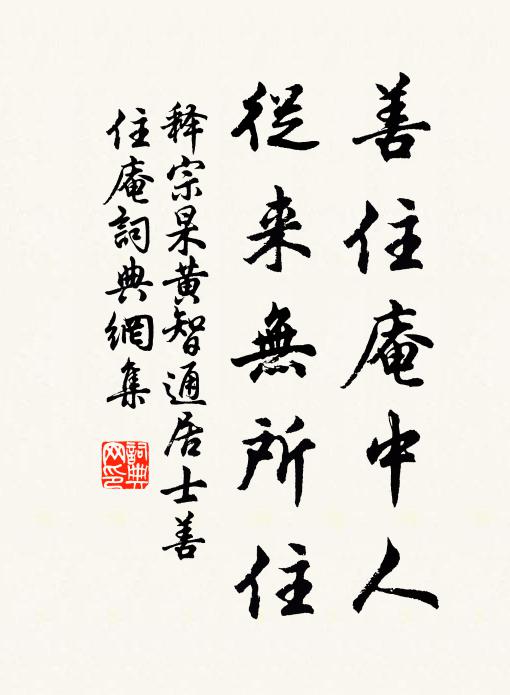 善住庵中人
從来無所住
释宗杲黄智通居士善
住庵詞典網集
詞典
网印